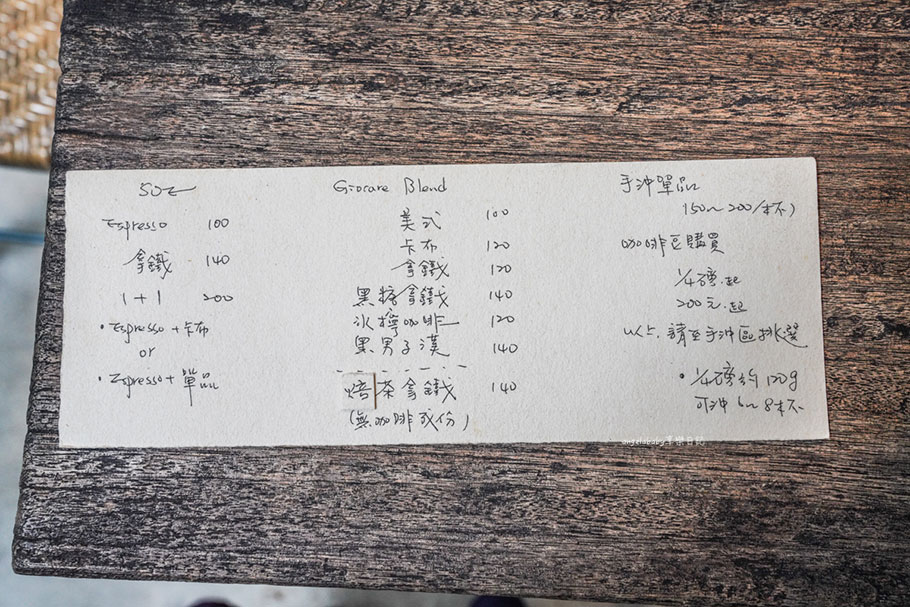 SOZ
Espresso 100
拿鐵 140
1+1 200
・Espresso+卡布
or
・Espresso+單品
Giocare Blend
美式 100
卡布 120
拿鐵 120
黑糖拿鐵 140
冰檸咖啡 120
黑男子漢 140
焙茶拿鐵 140
(無咖啡成份)
手沖單品
150~200/杯)
咖啡豆購買
1/4磅.起
200元.起
以上.請至手沖區挑選
・1/4磅約120g
可沖6~8杯